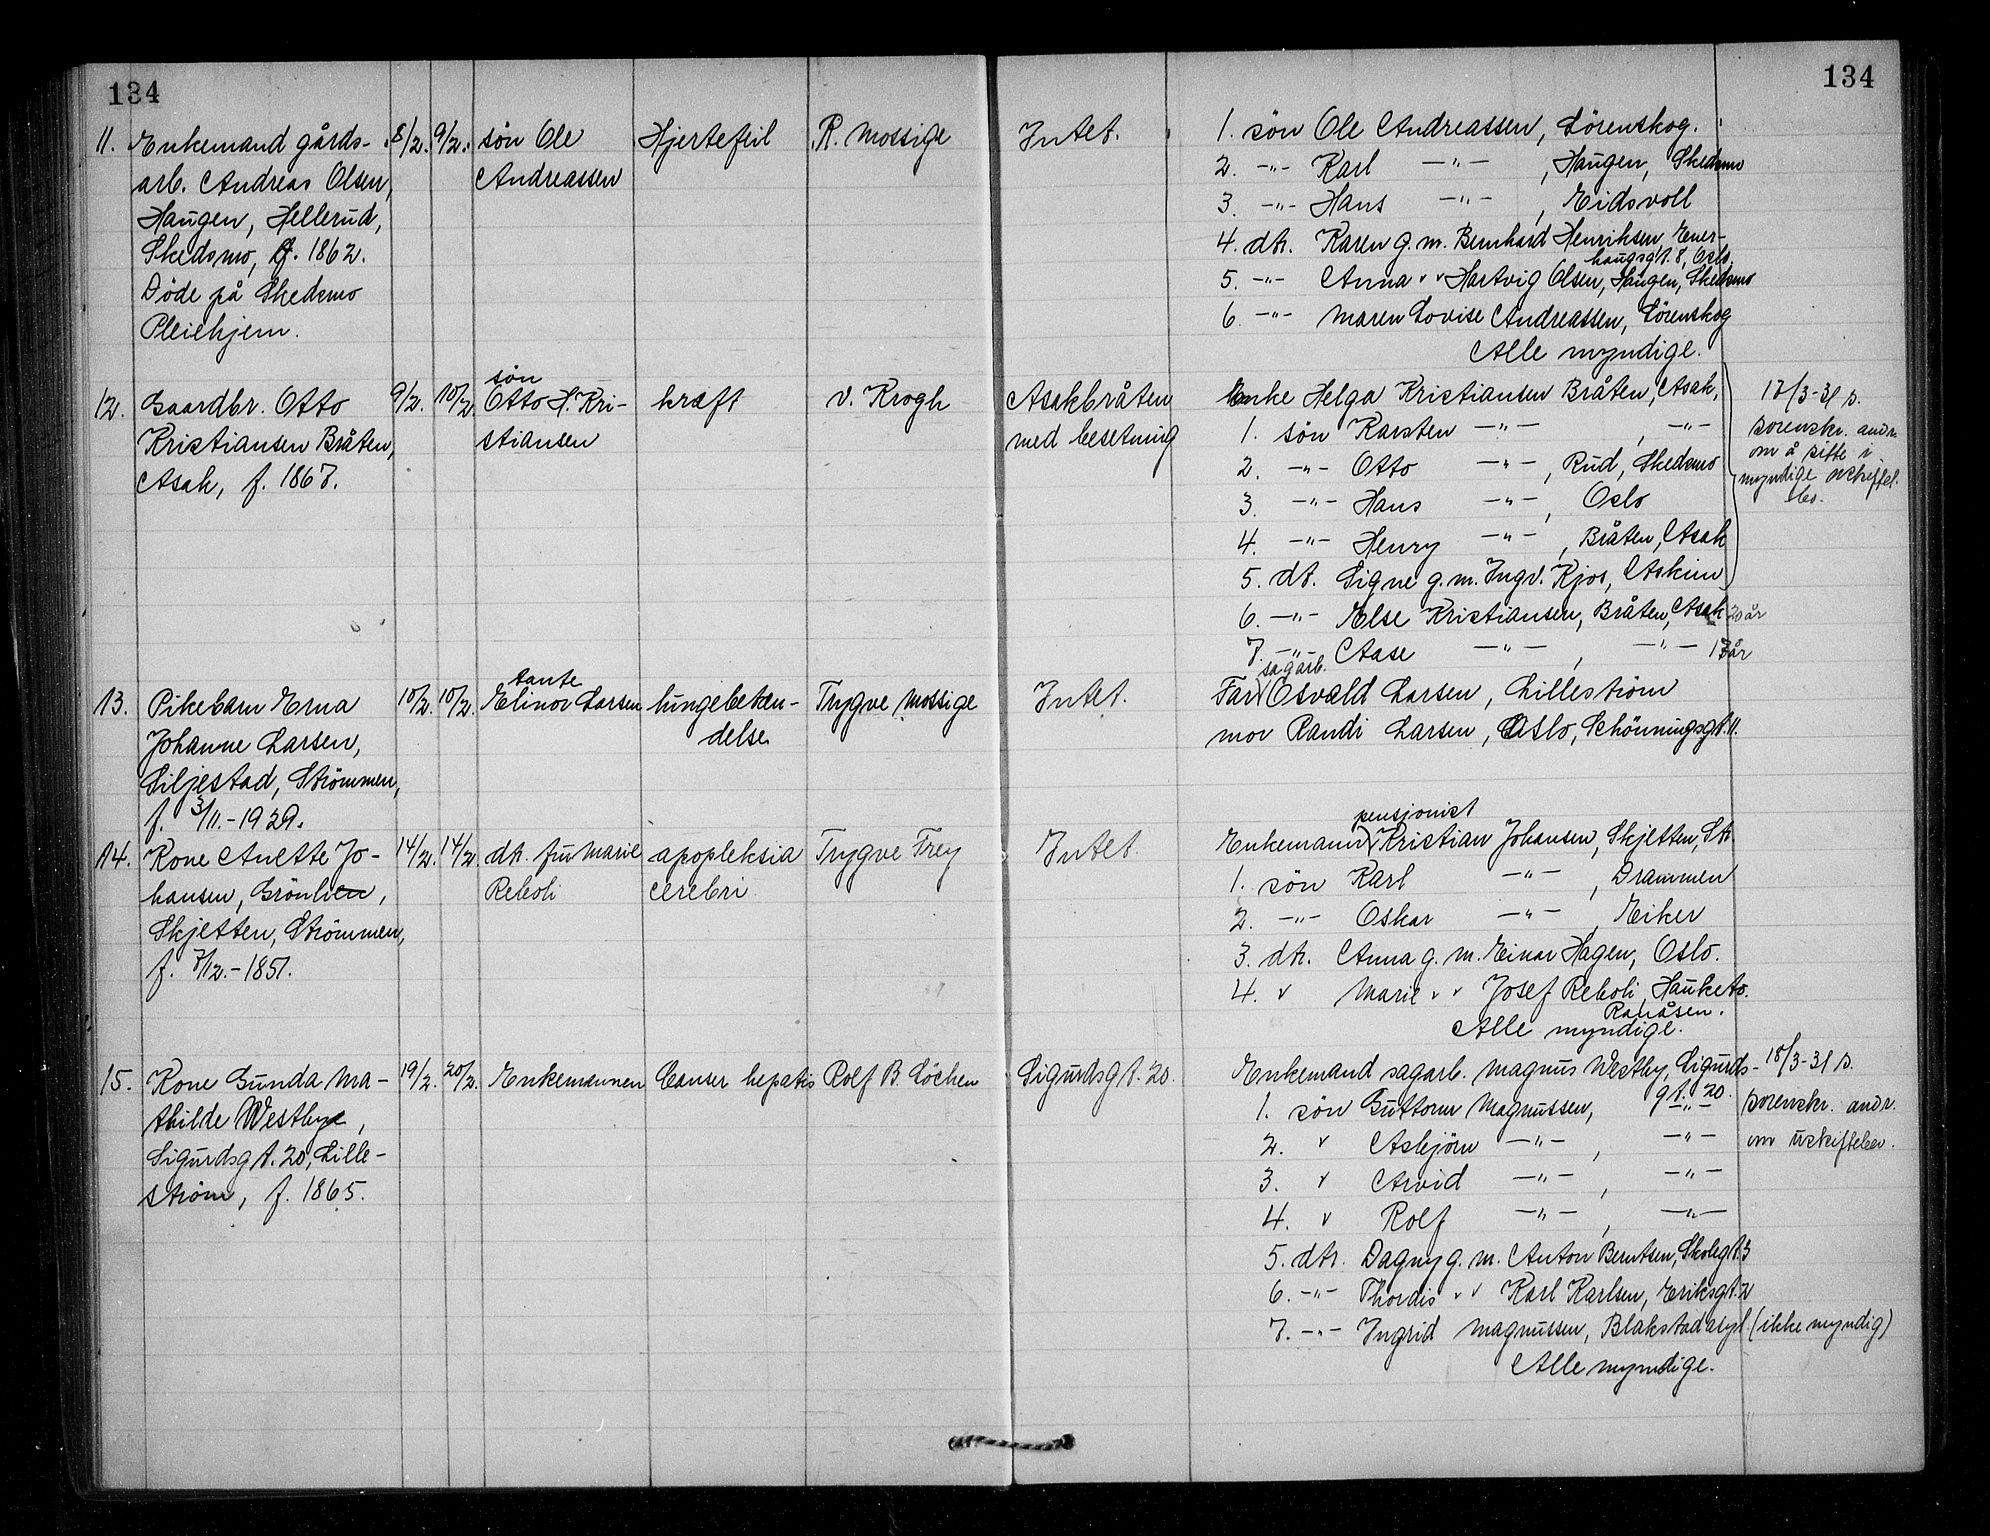 134
134
11. Enkemand gårds-
arb. Andreas Olsen,
Haugen, Hellerud,
Skedsmo, f. 1862.
Døde på Skedsmo
Pleiehjem.
8/2. 9/2.
søn Ole
Andreassen
Hjertefeil
R. Mossige
Intet.
1. søn Ole Andreassen, Lørenskog.
2. -"- Karl -"-, Haugen, Skedsmo
3. -"- Hans -"-, Eidsvoll
4. dtr. Karen g. m. Bernhard Henriksen, Ener-
haugsgt. 8, Oslo.
5. -"- Anna " " Hartvig Olsen, Haugen, Skedsmo
6. -"- Maren Lovise Andreassen, Lørenskog
Alle myndige.
12. Gaardbr. Otto
Kristiansen Bråten,
Asak, f. 1867.
9/2. 10/2
søn
Otto H. Kri-
stiansen
kræft
v. Krogh
Asakbråten
med besetning
Enke Helga Kristiansen Bråten, Asak,
1. søn Karsten -"-, -"-
2. -"- Otto -"-, Rud, Skedsmo
3. -"- Hans -"-, Oslo
4. -"- Henry -"-, Bråten, Asak
5. dt. Signe g. m. Ingv. Kjos, Askim
6. -"- Else Kristiansen, Bråten, Asak 20 år
7. -"- Aase -"-, -"- 13 år
17/3-31 s.
sorenskr. andr.
om å sitte i
myndige uskiftet
bo.
13. Pikebarn Erna
Johanne Larsen,
Liljestad, Strømmen,
f. 3/11.-1929.
10/2. 10/2.
tante
Elinor Larsen
lungebeten-
delse
Trygve Mossige
Intet.
sagarb.
Far Osvald Larsen, Lillestrøm
mor Randi Larsen, Oslo, Schønningsgt. 11.
14. Kone Anette Jo-
hansen, Grønlien,
Skjetten, Strømmen,
f. 7/12.-1851.
14/2. 14/2.
dtr. fru Marie
Reboli
apopleksia
cerebri
Trygve Frey
Intet.
pensjonist
Enkemann Kristian Johansen, Skjetten, Str.
1. søn Karl -"-, Drammen
2. -"- Oskar -"-, Eiker
3. dtr. Anna g. m. Einar Hagen, Oslo.
4. " Marie " " Josef Reboli, Hauketo.
Ranåsen.
Alle myndige.
15. Kone Gunda Ma-
thilde Westbye,
Sigurdsgt. 20, Lille-
strøm, f. 1865.
19/2. 20/2.
Enkemannen
Canser hepatis
Rolf B. Løchen
Sigurdsgt. 20.
Enkemand sagarb. Magnus Westby, Sigurds-
gt. 20.
1. søn Guttorm Magnussen, -"-
2. " Asbjørn -"-, -"-
3. " Arvid -"-, -"-
4. " Rolf -"-, -"-
5. dtr. Dagny g. m. Anton Berntsen, Skolegt. 3
6. -"- Thordis " " Karl Karlsen, Eriksgt. 2
7. -"- Ingrid Magnussen, Blakstad asyl. (ikke myndig)
Alle myndige.
18/3-31 s.
sorenskr. andr.
om uskiftebev.